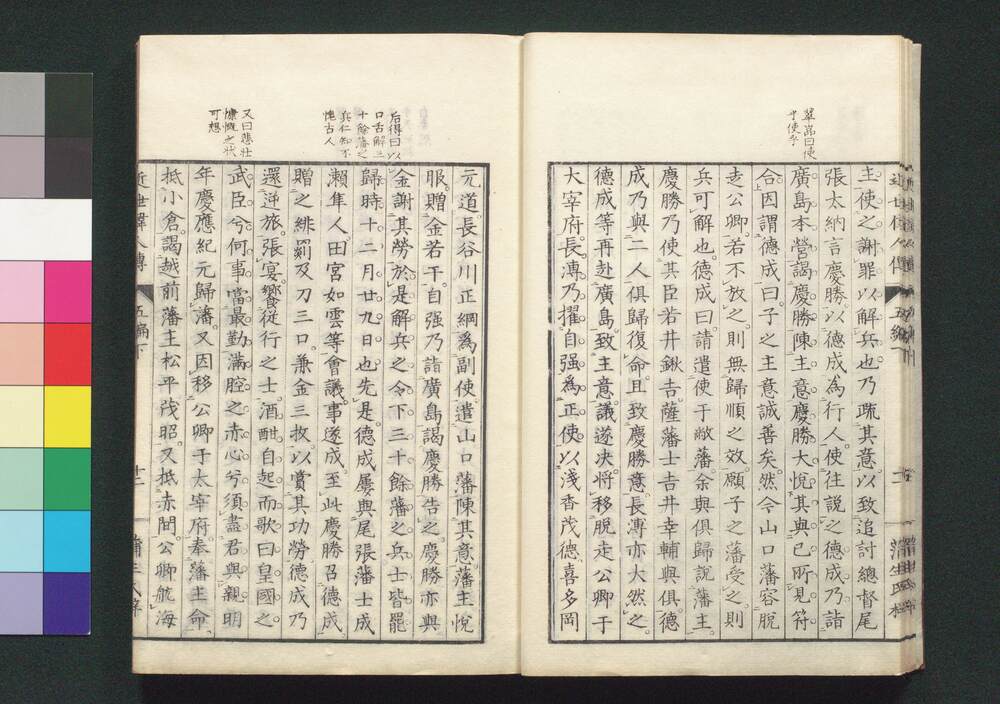 翠嵓曰使
才使乎
主使之謝罪以解兵也乃疏其意以致追討總督尾
張太納言慶勝以德成為行人使往説之德成乃詣
廣島本營謁慶勝陳主意慶勝大悦其與己所見符
合因謂德成曰子之主意誠善矣然令山口藩容脱
走公卿若不放之則無歸順之效願子之藩受之則
兵可解也德成曰請遣使于敝藩余與俱歸説藩主
慶勝乃使其臣若井鍬吉薩藩士吉井幸輔與俱德
成乃與二人俱歸復命且致慶勝意長溥亦大然之
德成等再赴廣島致主意議遂决將移脱走公卿于
大宰府長溥乃擢自强為正使以淺香茂德喜多岡
元道長谷川正綱為副使遣山口藩陳其意藩主悦
服贈金若干自强乃詣廣島謁慶勝告之慶勝亦與
金謝其勞於是解兵之令下三十餘藩之兵士皆罷
歸時十二月廿九日也先是德成屢與尾張藩士成
瀨隼人田宮如雲等會議事遂成至此慶勝召德成
贈之緋罽及刀三口兼金三枚以賞其功勞德成乃
還逆旅張宴饗從行之士酒酣自起而歌曰皇國之
武臣兮何事當最勤滿腔之赤心兮須盡君與親明
年慶應紀元歸藩又因移公卿于太宰府奉藩主命
抵小倉謁越前藩主松平茂昭又抵赤間公卿航海
后得曰以
口舌解三
十餘藩之
兵仁知不
愧古人
又曰悲壮
慷慨之状
可想
近世偉人傳
五編下
十二
蒲生氏梓